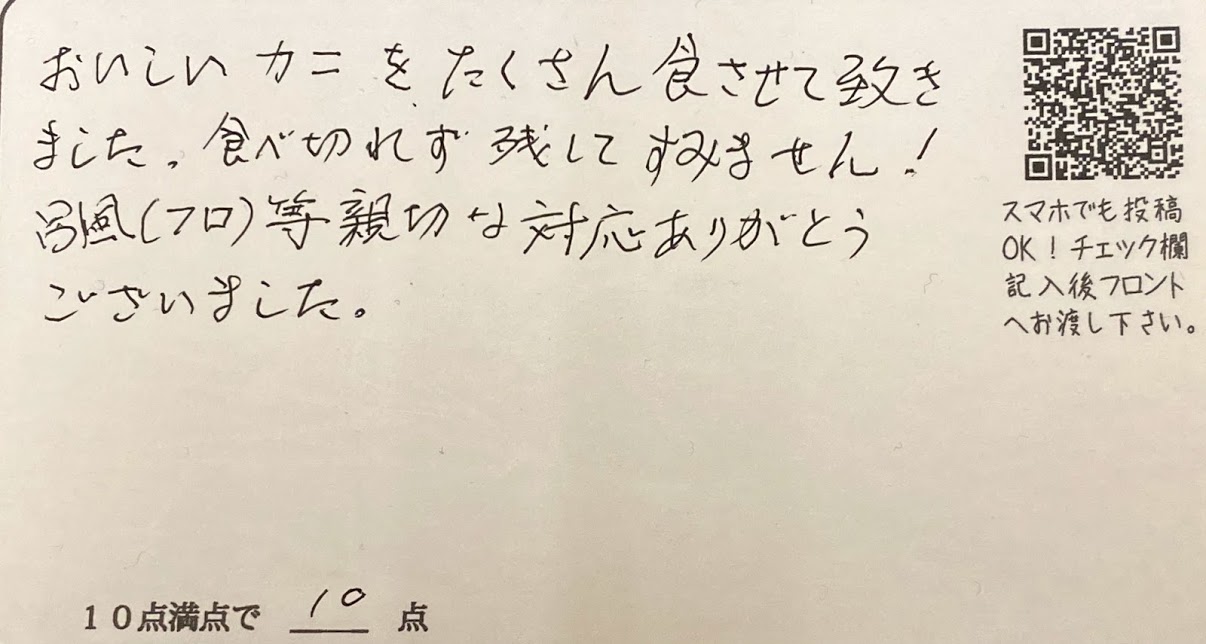 おいしいカニをたくさん食させて致き
ました。食べ切れず残してすみません！
呂風(フロ)等親切な対応ありがとう
ございました。
スマホでも投稿
OK！チェック欄
記入後フロント
へお渡し下さい。
10点満点で 10 点